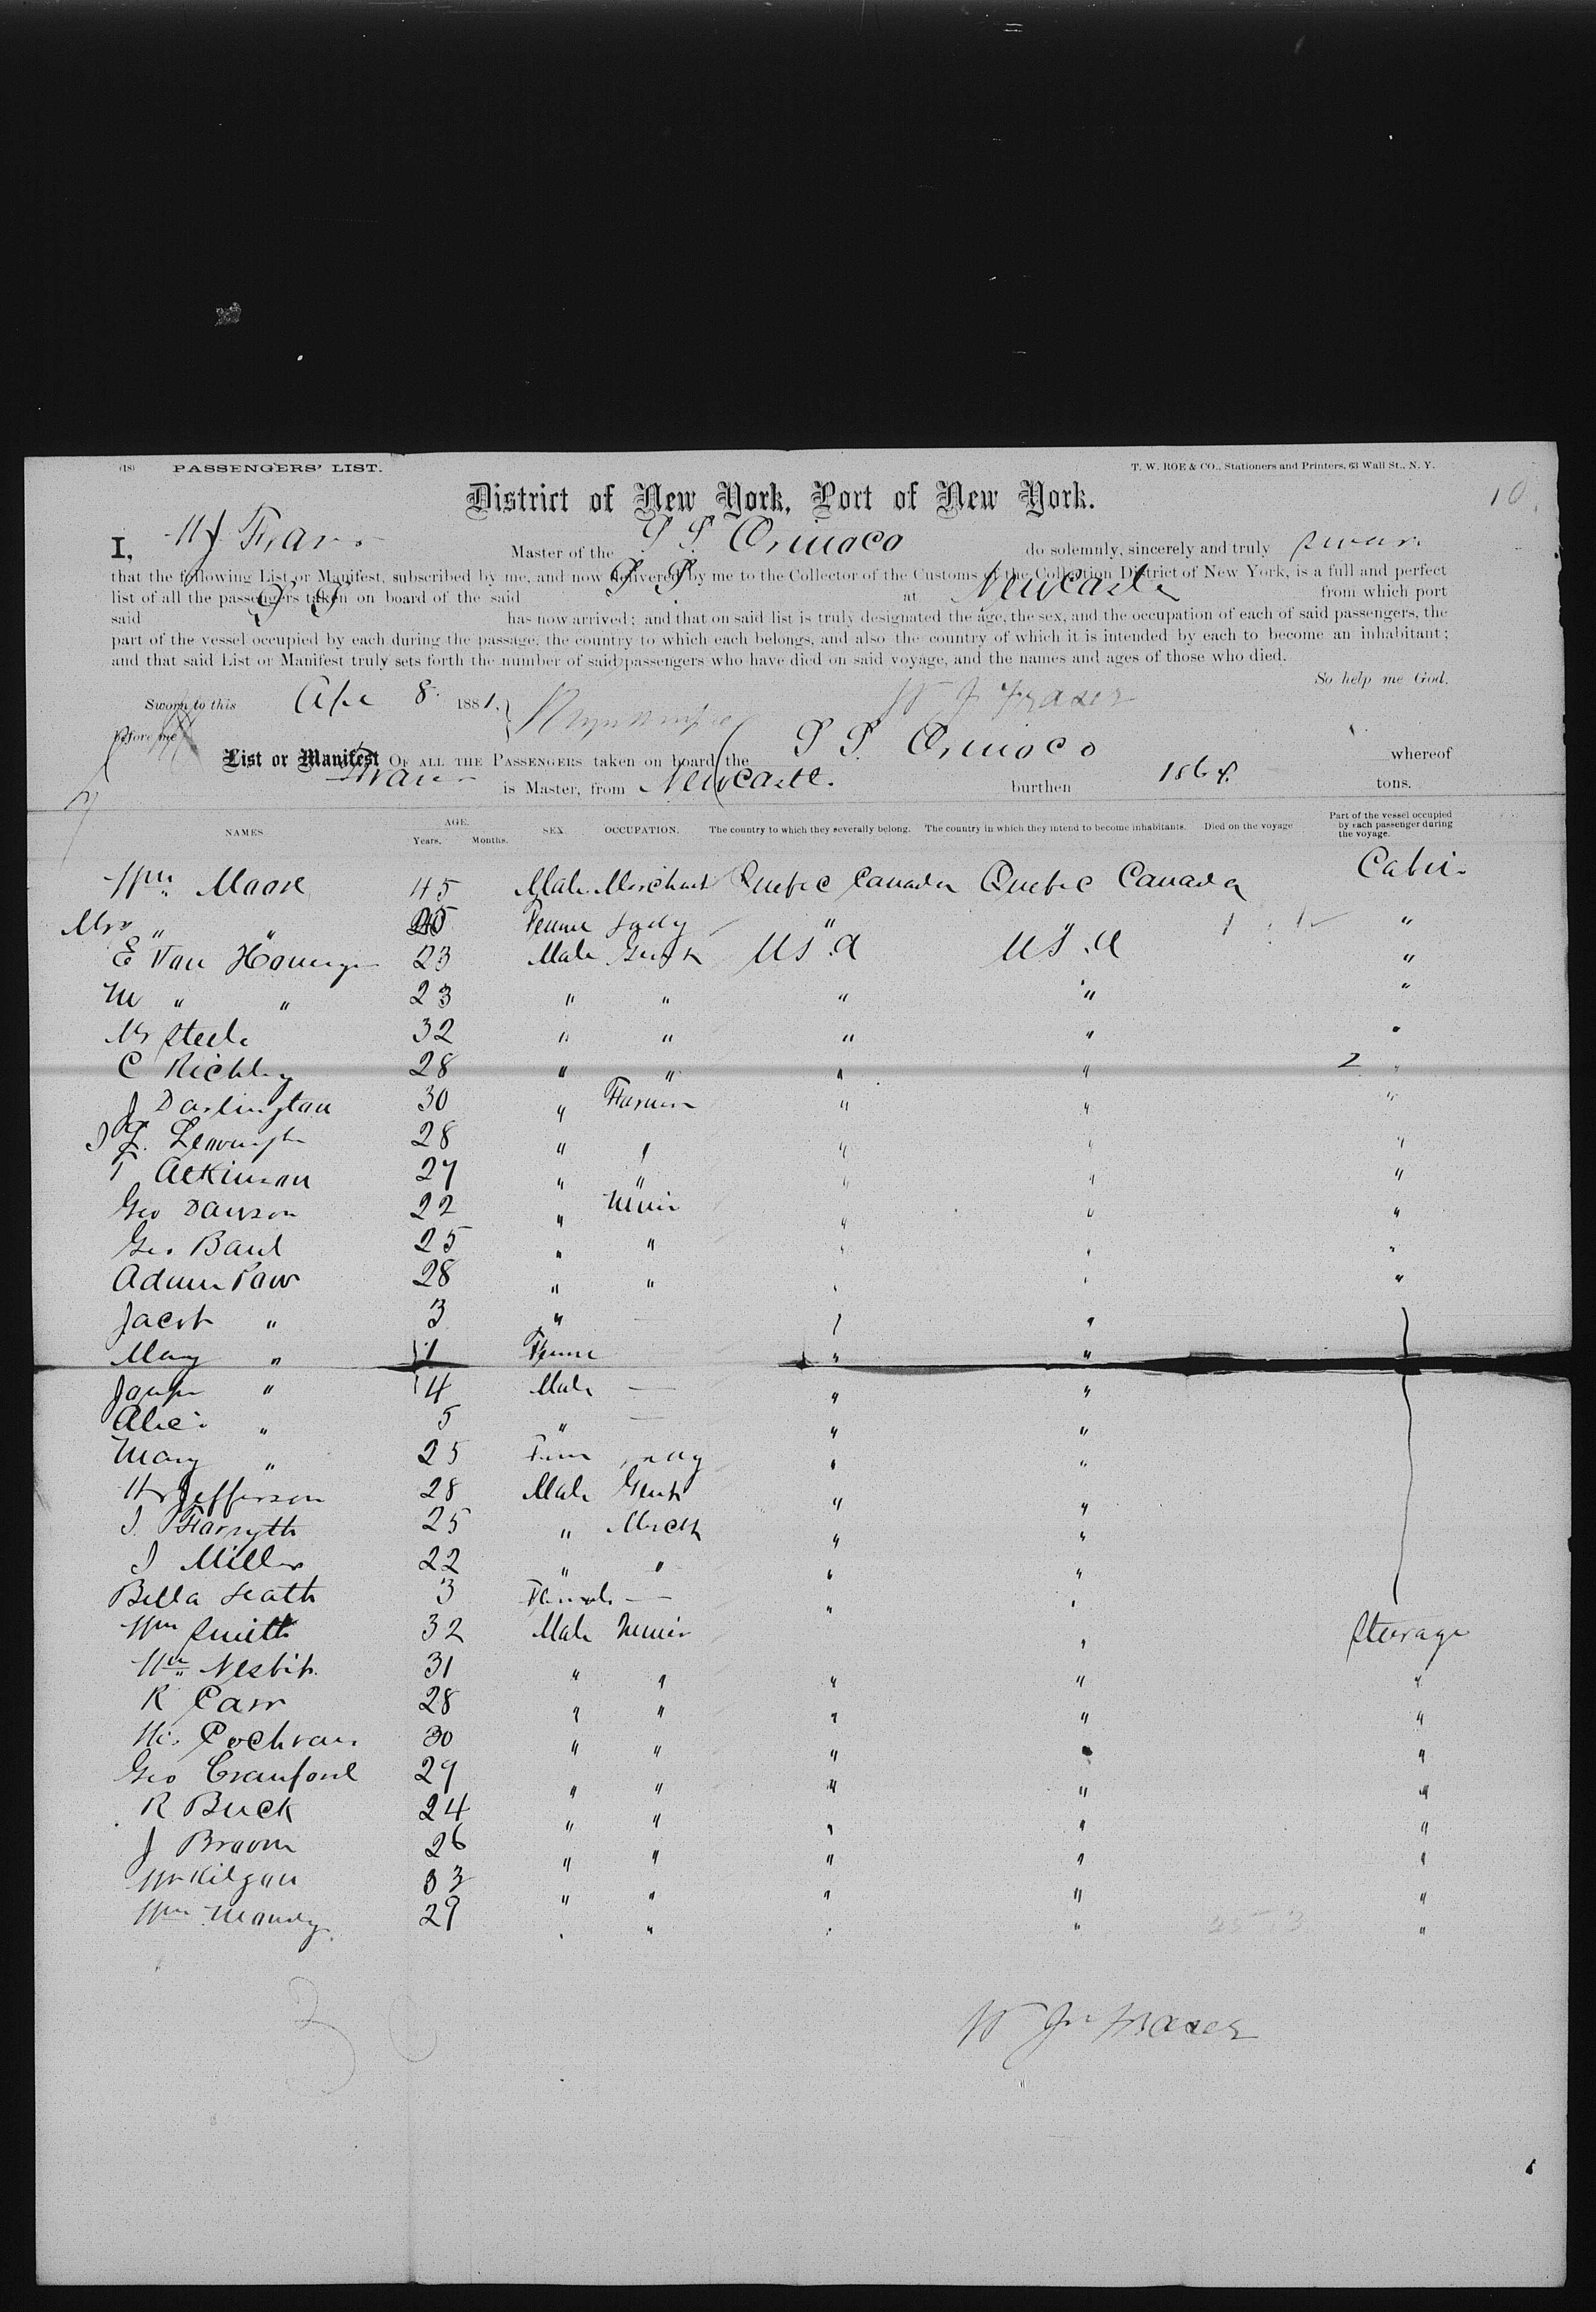 (18) PASSENGERS' LIST. T. W. ROE & CO., Stationers and Printers, 63 Wall St., N. Y.
District of New York, Port of New York. 10
I, W J Fraser Master of the S S Orinoco do solemnly, sincerely and truly swear
that the following List or Manifest, subscribed by me, and now delivered by me to the Collector of the Customs of the Collection District of New York, is a full and perfect
list of all the passengers taken on board of the said S S at Newcastle from which port
said S S has now arrived; and that on said list is truly designated the age, the sex, and the occupation of each of said passengers, the
part of the vessel occupied by each during the passage, the country to which each belongs, and also the country of which it is intended by each to become an inhabitant;
and that said List or Manifest truly sets forth the number of said passengers who have died on said voyage, and the names and ages of those who died.
So help me God.
Sworn to this Apr 8 1881. W J Fraser
before me
List or Manifest OF ALL THE PASSENGERS taken on board the S S Orinoco whereof
Fraser is Master, from Newcastle. burthen 1864 tons.
NAMES AGE. Years. Months. SEX. OCCUPATION. The country to which they severally belong. The country in which they intend to become inhabitants. Died on the voyage Part of the vessel occupied by each passenger during the voyage.
Wm Moore 45 Male Merchant Quebec Canada Quebec Canada Cabin
Mrs " " Female Lady " " "
E Van 23 Male Gent US.A US.A "
M " " 23 " " " " "
Mr Steele 32 " " " " "
C Richley 28 " " " " 2 "
J Darlington 30 " Farmer " " "
28 " " " " "
T Atkinson 27 " " " " "
Geo Dawson 22 " Miner " " "
Geo 25 " " " " "
28 " " " " "
Jacob " 3 " — " "
Mary " 1 Feme " "
" 4 Male — " "
" 5 " — " "
Mary " 25 Fem Lady " "
Jefferson 28 Male Gent " "
J. Forsyth 25 " Merch " "
J Miller 22 " " " "
Bella Heath 3 Female — " "
Wm Smith 32 Male Miner " Steerage
Wm Nesbit 31 " " " " "
R Carr 28 " " " " "
Cochran 30 " " " " "
Geo Cranford 29 " " " " "
R Buck 24 " " " " "
J Broom 26 " " " " "
Kilgan 33 " " " " "
Wm Mandy 29 " " " " "
W J Fraser